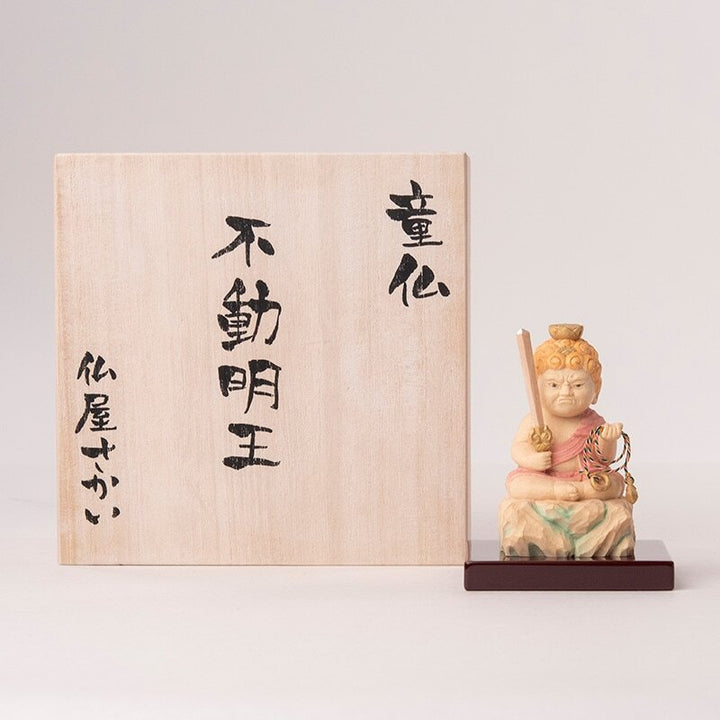 童仏
不動明王
仏屋さかい